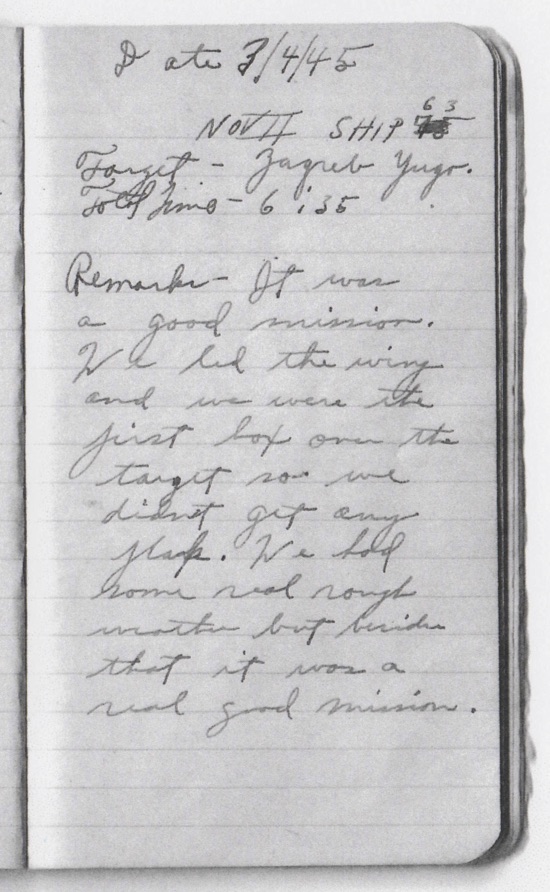 Date 3/4/45
NOV II SHIP 63
Target - Zagreb Yugo.
Total Time - 6:35
Remarks - It was
a good mission.
We led the wing
and we were the
first box over the
target so we
didnt get any
flak. We had
some real rough
weather but besides
that it was a
real good mission.